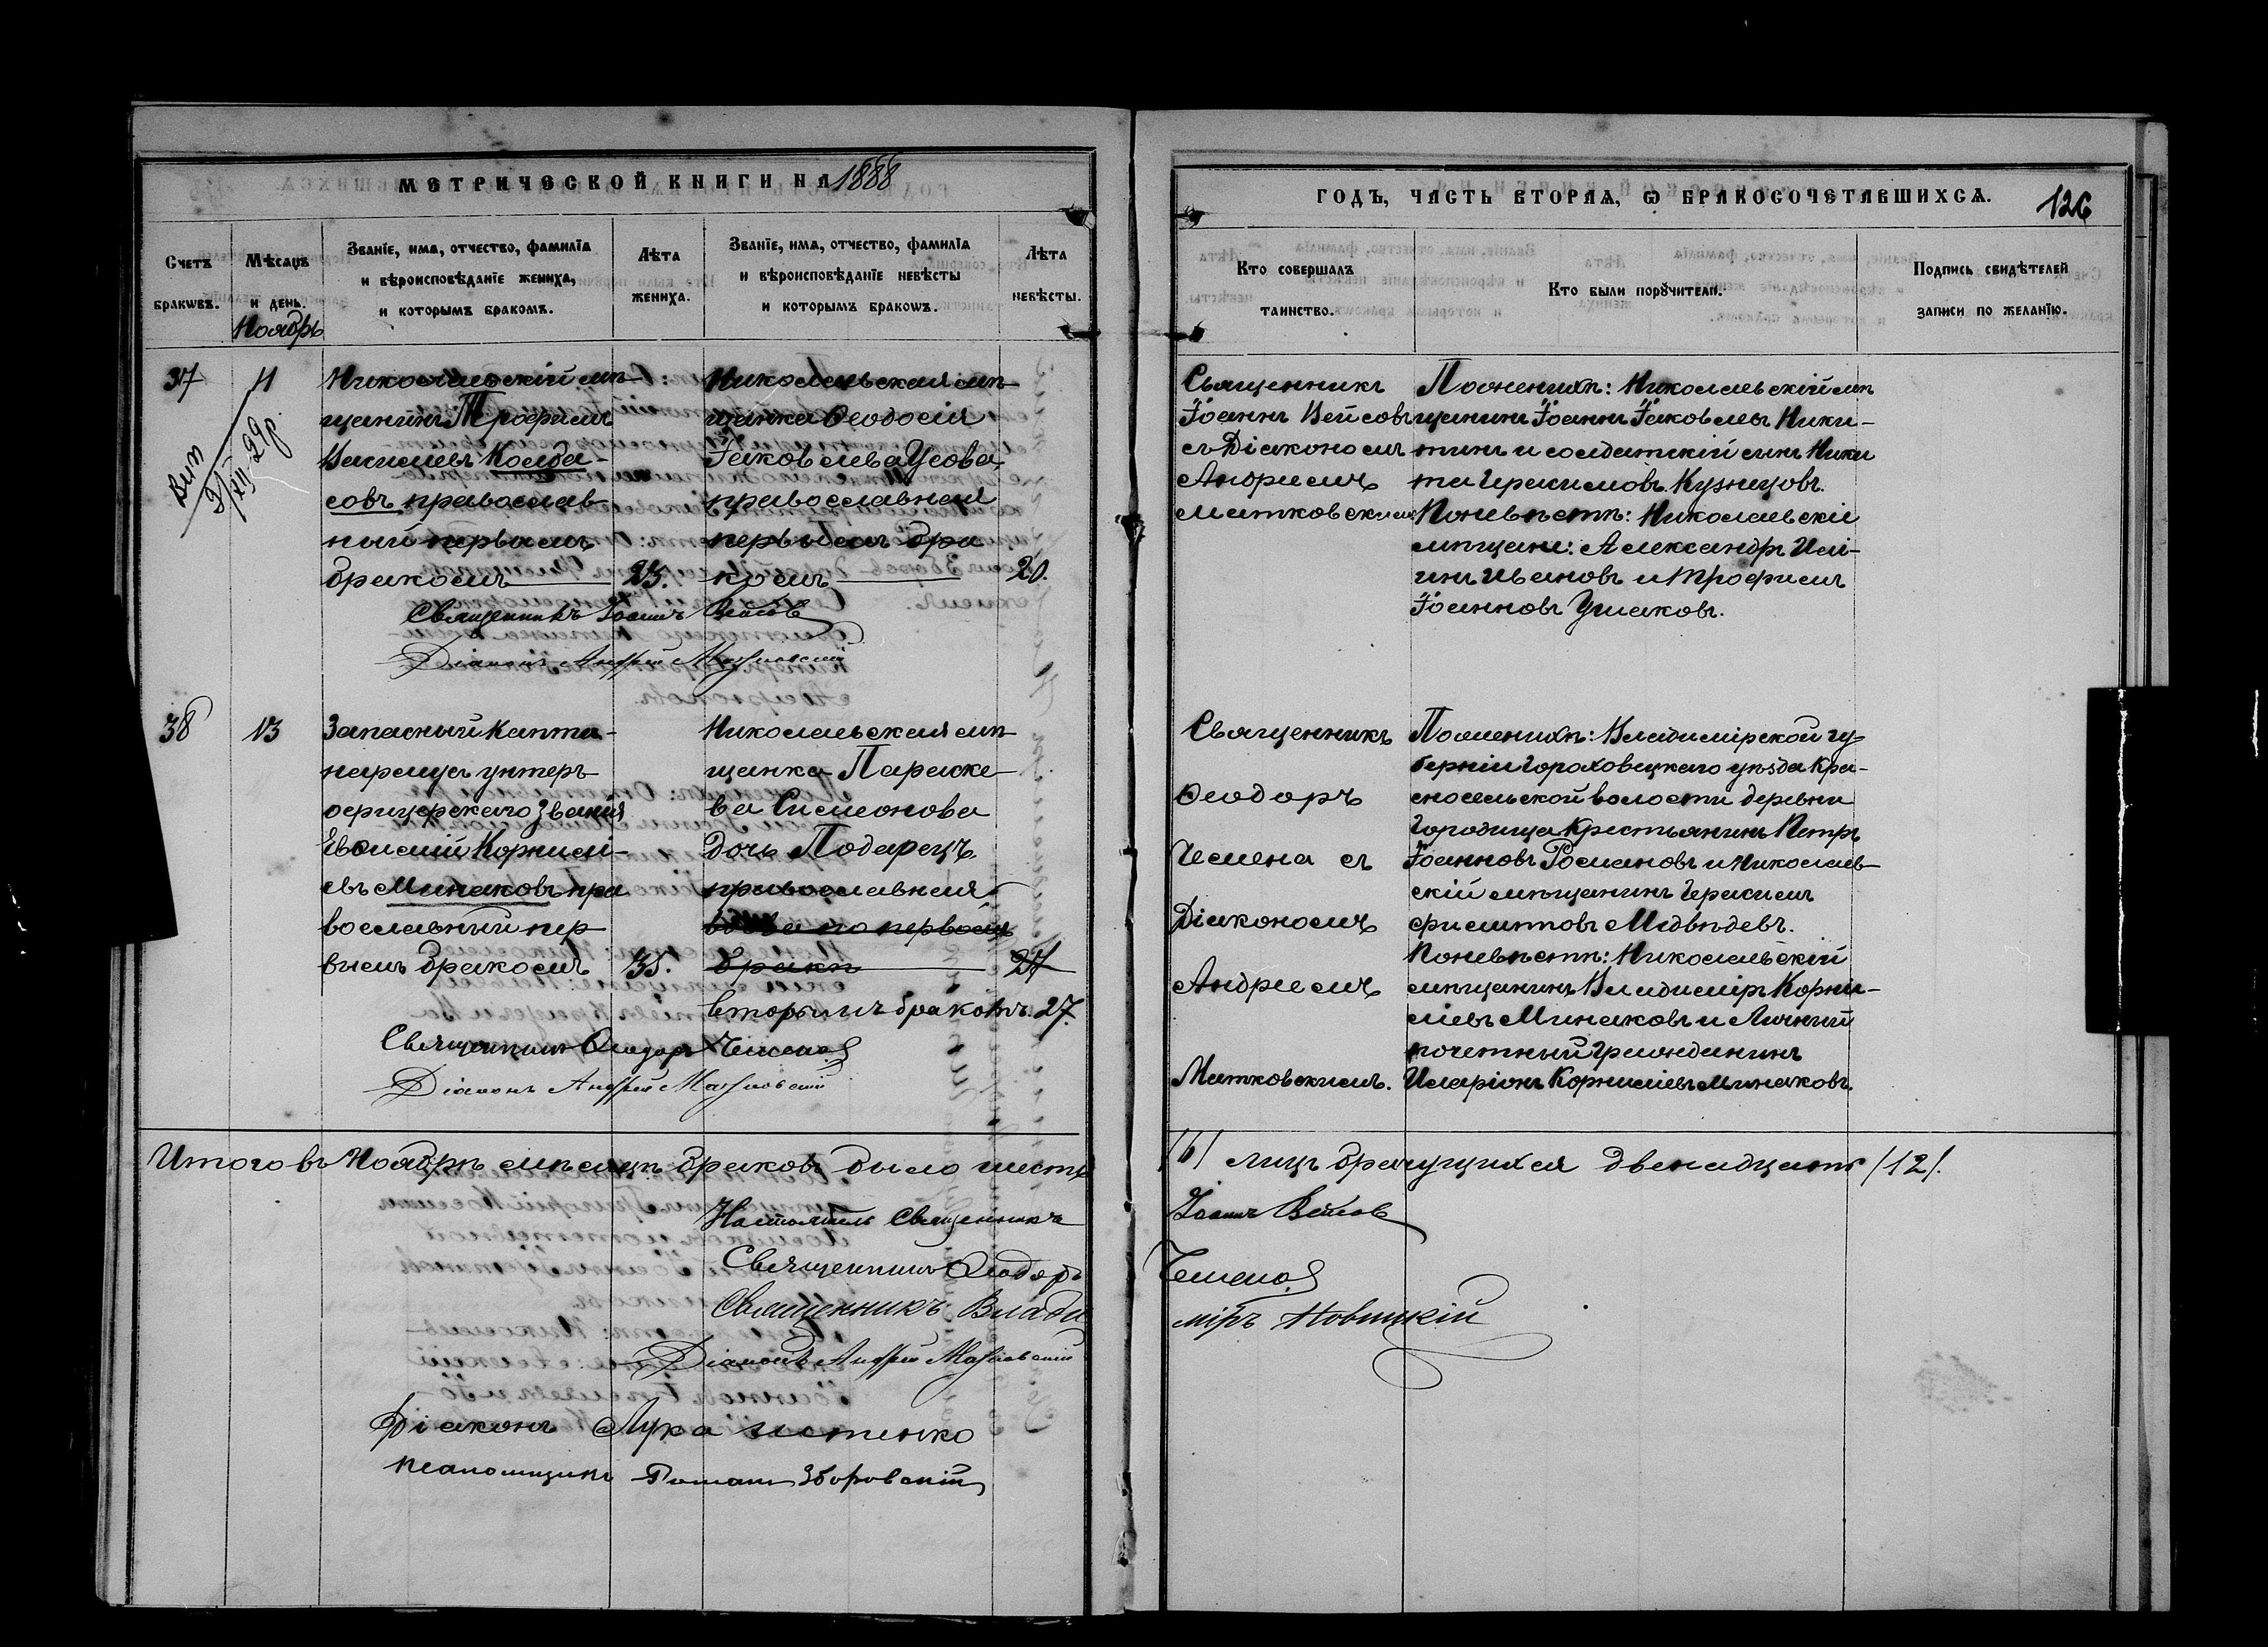 МЕТРИЧЕСКОЙ КНИГИ НА 1888
ГОДЪ, ЧАСТЬ ВТОРАѦ, Ѡ БРАКОСОЧЕТАВШИХСѦ.
126
Счетъ бракѡвъ.
Мѣсѧцъ и день.
Ноябрь
Званїе, имѧ, отчество, фамилїѧ
и вѣроисповѣданїе жениха,
и которымъ бракомъ.
Лѣта жениха.
Званїе, имѧ, отчество, фамилїѧ
и вѣроисповѣданїе невѣсты
и которымъ бракомъ.
Лѣта невѣсты.
Кто совершалъ таинство.
Кто были порꙋчители.
Подпись свидѣтелей записи по желанїю.
37
11
Николаевскій мѣ-
щанинъ Трофимъ
Василіевъ Колба-
совъ православ-
ный первымъ
бракомъ 23.
Николаевская мѣ-
щанка Ѳеодосія
Іаковлева Усова
православная
первымъ бра
комъ 20.
Вып
XII 29 г.
Священникъ Іоаннъ Вейсовъ
Діаконъ Андрей Матковскій
Священникъ
Іоаннъ Вейсовъ
съ Діакономъ
Андреемъ
Матковскимъ
По женихѣ: Николаевскій мѣ
щанинъ Іоаннъ Іаковлевъ Ники-
тинъ и солдатскій сынъ Ники
та Герасимовъ Кузнецовъ.
По невѣстѣ: Николаевскіе
мѣщане: Александръ Иль-
инъ Ивановъ и Трофимъ
Іоанновъ Ушаковъ.
38
13
Запасный Каптe-
нармусъ унтеръ
офицерскаго званія
Евѳимій Корнилі-
евъ Минаковъ пра
вославный пер
вымъ бракомъ 35.
Николаевская мѣ-
щанка Параске
ва Симеонова
дочь Подарецъ
православная
вдова по первомъ
бракѣ 27
вторымъ бракомъ. 27.
Священникъ Ѳеодоръ Чемена
Діаконъ Андрей Матковскій
Священникъ
Ѳеодоръ
Чемена съ
Діакономъ
Андреемъ
Матковскимъ.
По женихѣ: Владимірской гу
берніи Гороховецкаго уѣзда Кра-
сносельской волости деревни
Городища Крестьянинъ Петръ
Іоанновъ Романовъ и Николаев-
скій мѣщанинъ Герасимъ
Медвѣдевъ.
По невѣстѣ: Николаевскій
мѣщанинъ Владиміръ Корни-
ліевъ Минаковъ и Личный
почетный гражданинъ
Иларіонъ Корниліевъ Минаковъ.
Итого въ Ноябрѣ мѣсяцѣ браковъ было шесть /6/ лицъ брачущихся двенадцать /12/.
Настоятель Священникъ Іоаннъ Вейсовъ
Священникъ Ѳеодоръ Чемена
Священникъ Владиміръ Новицкій
Діаконъ Андрей Матковскій
Діаконъ Лука
Псаломщикъ Романъ Зборовскій